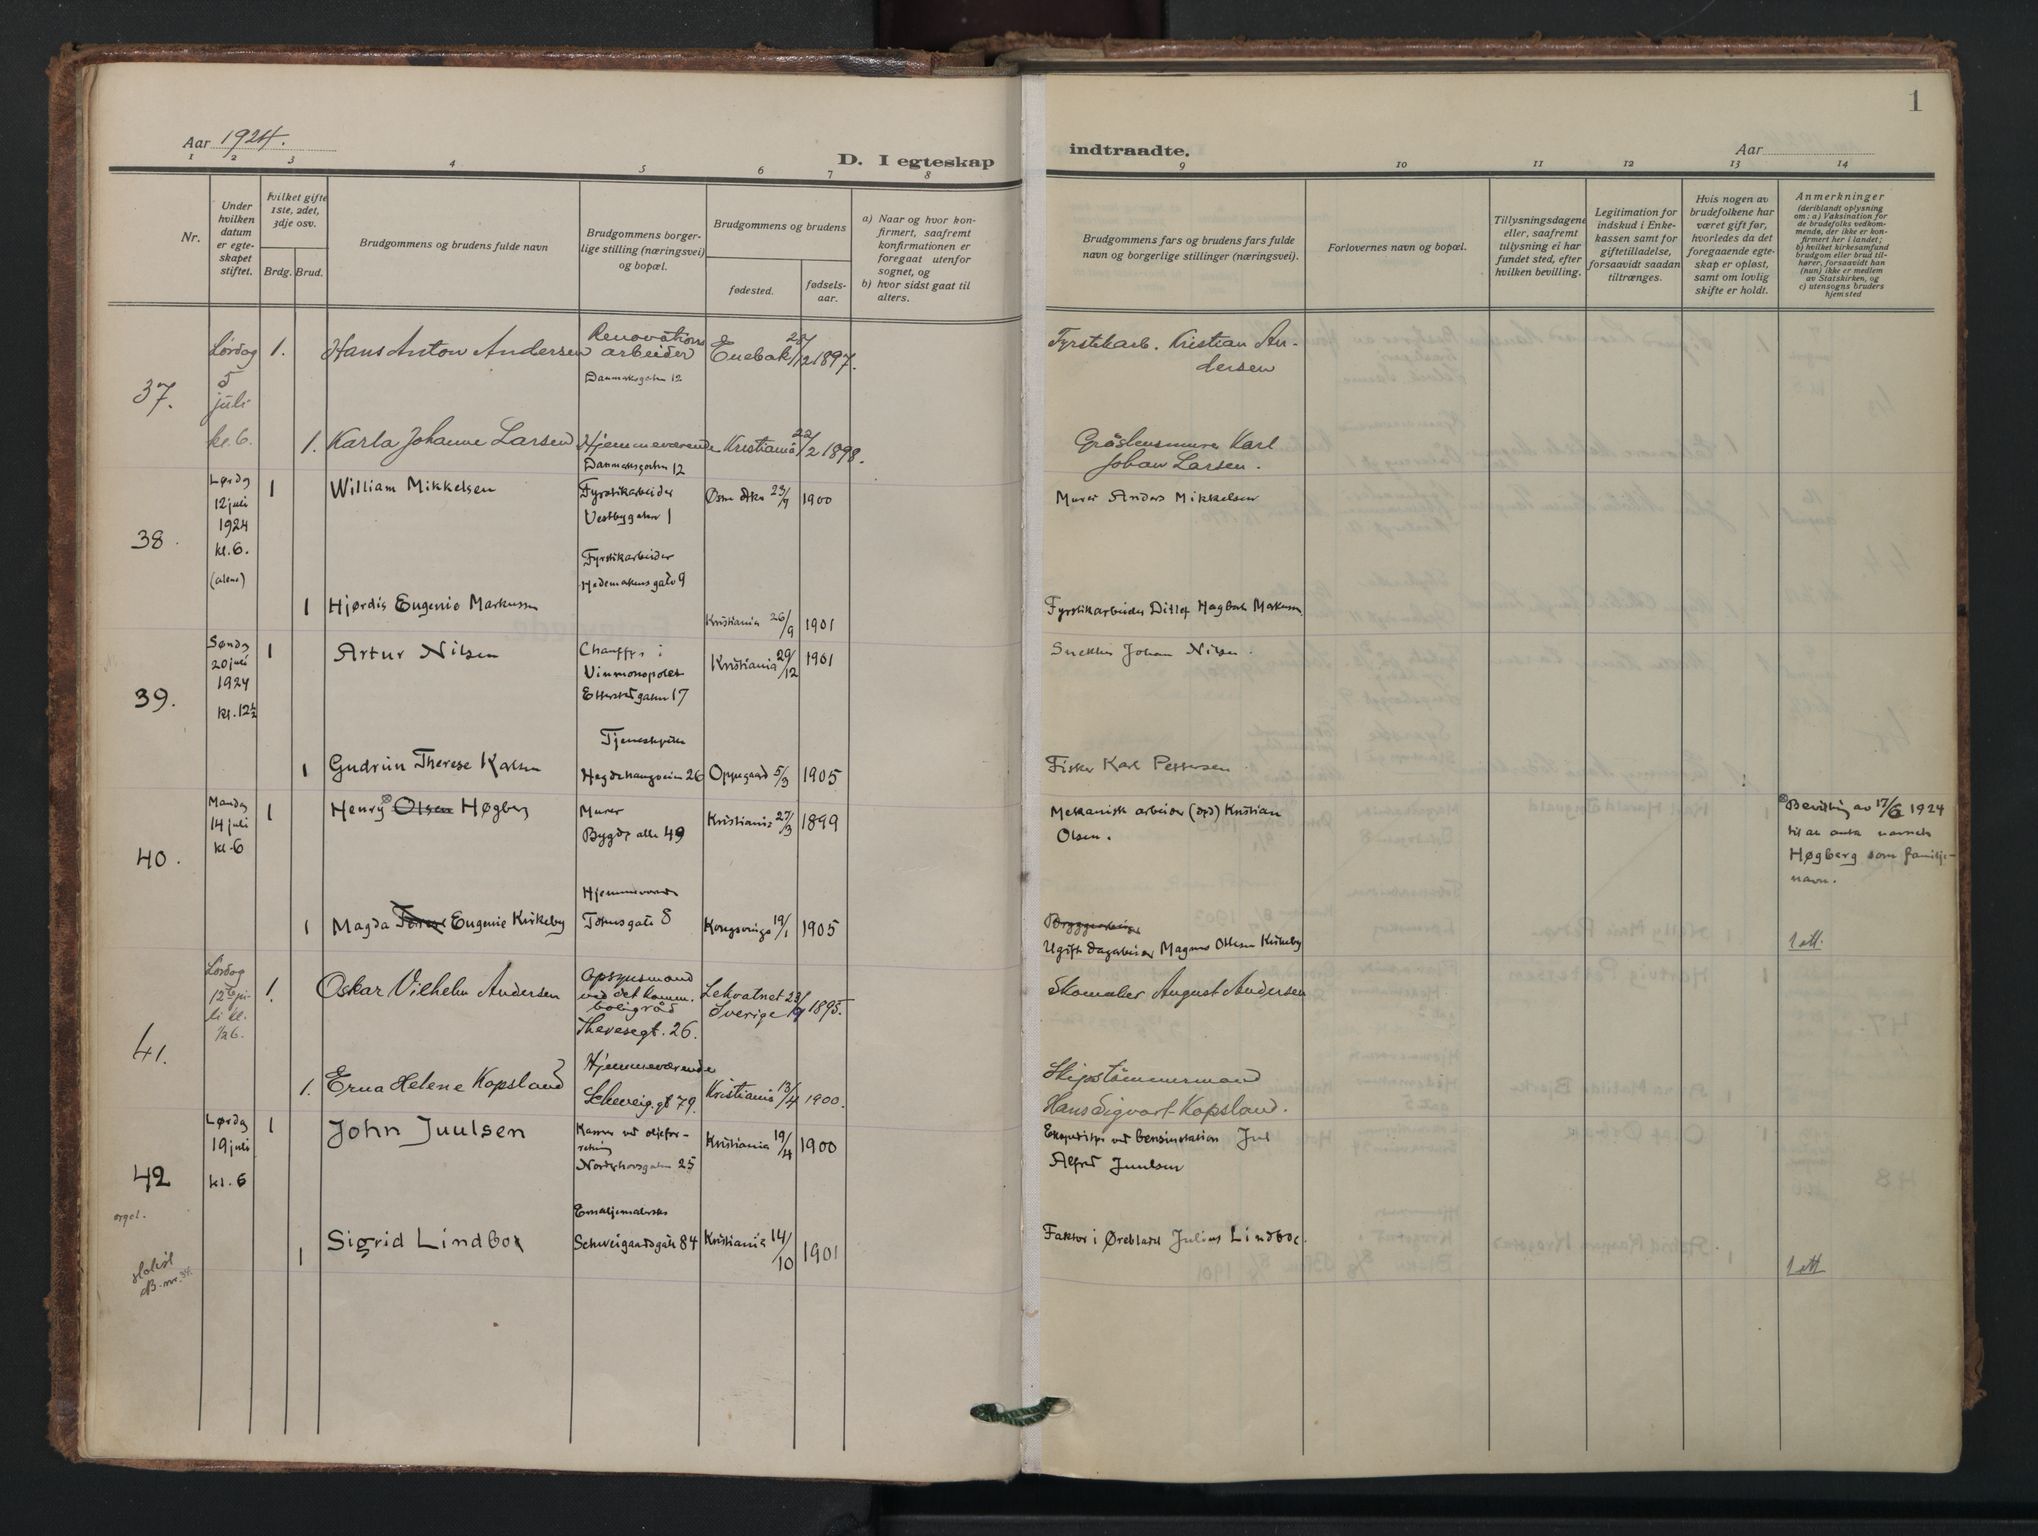 1
Aar 1924.
D. I egteskap indtraadte.
Aar
1 2 3 4 5 6 7 8 9 10 11 12 13 14
Nr.
Under hvilken datum er egte-skapet stiftet.
hvilket gifte 1ste, 2det, 3dje osv.
Brdg. Brud.
Brudgommens og brudens fulde navn
Brudgommens borger-lige stilling (næringsvei) og bopæl.
Brudgommens og brudens
fødested.
fødsels-aar.
a) Naar og hvor kon-firmert, saafremt konfirmationen er foregaat utenfor sognet, og
b) hvor sidst gaat til alters.
Brudgommens fars og brudens fars fulde navn og borgerlige stillinger (næringsvei).
Forlovernes navn og bopæl.
Tillysningsdagene eller, saafremt tillysning ei har fundet sted, efter hvilken bevilling.
Legitimation for indskud i Enke-kassen samt for giftetilladelse, forsaavidt saadan tiltrænges.
Hvis nogen av brudefolkene har været gift før, hvorledes da det foregaaende egte-skap er opløst, samt om lovlig skifte er holdt.
Anmerkninger
(deriblandt oplysning om: a) Vaksination for de brudefolks vedkom-mende, der ikke er kon-firmert her i landet; b) hvilket kirkesamfund brudgom eller brud til-hører, forsaavidt han (nun) ikke er medlem av Statskirken, og c) utensogns bruders hjemsted
37.
Lørdag 5 juli kl. 6.
1. Hans Anton Andersen
Renovations arbeider
Danmarksgaten 12
Enebak 23/12 1897.
Fyrstikarb. Kristian An-
dersen
1. Karla Johanne Larsen
Hjemmeværende
Danmarksgaten 12
Kristiania 22/2 1898.
Karl
Johan Larsen.
38.
Lørdag 12 juli 1924 kl. 6. (alene)
1 William Mikkelsen
Fyrstikarbeider
Vestbygaten 1
23/9 1900
Murer Anders Mikkelsen
1 Hjørdis Eugenie Markussen
Fyrstikarbeider
Hedemarkens gate 9
Kristiania 26/9 1901
Fyrstikarbeider Ditlef Hagbart Markussen
39.
Søndag 20 juli 1924 kl. 12½
1 Artur Nilsen
Chauffør i
Vinmonopolet
Etterstadgaten 17
Kristiania 29/12 1901
Snekker Johan Nilsen.
1 Gudrun Therese Karlsen
Tjenestepike
Hegdehaugsveien 26
Oppegaard 5/3 1905
Fisker Karl Pettersen.
40.
Mandag 14 juli kl. 6
1 Henry Olsen Høgberg
Murer
Bygdø alle 49
Kristiania 27/3 1899
Mekanisk arbeider (død) Kristian
Olsen.
Bevilling av 17/6 1924
til at anta navnet
Høgberg som familje-
navn.
1 Magda Eugenie Kirkeby
Hjemmeværende
Totensgate 8
Kongsvinger 19/1 1905
Bryggearbeider
Ugift Dagarbeider Magnus Ottesen Kirkeby
1 att.
41.
Lørdag 12te juli kl. ½6.
1. Oskar Vilhelm Andersen
Opsynsmand
ved det komm.
boligråd
Theresegt. 26.
Lekvatnet
Sverige 23/9 1895.
Skomaker August Andersen
1. Erna Helene Kopsland
Hjemmeværende
Schweig.gt 79.
Kristiania 13/4 1900.
Skipstømmermand
Hans Sigvart Kopsland.
42
Lørdag 19 juli kl. 6
orgel.
1 John Juulsen
Kasserer ved oljefor-
retning
Norderhovsgaten 25
Kristiania 19/4 1900
Ekspeditør ved bensinstation Jul
Alfred Juulsen
1 Sigrid Lindboe
Emaljemalerske
Schweigaardsgate 84
Kristiania 14/10 1901
Faktor i Ørebladet Julius Lindboe.
B. nr. 34.
1 att